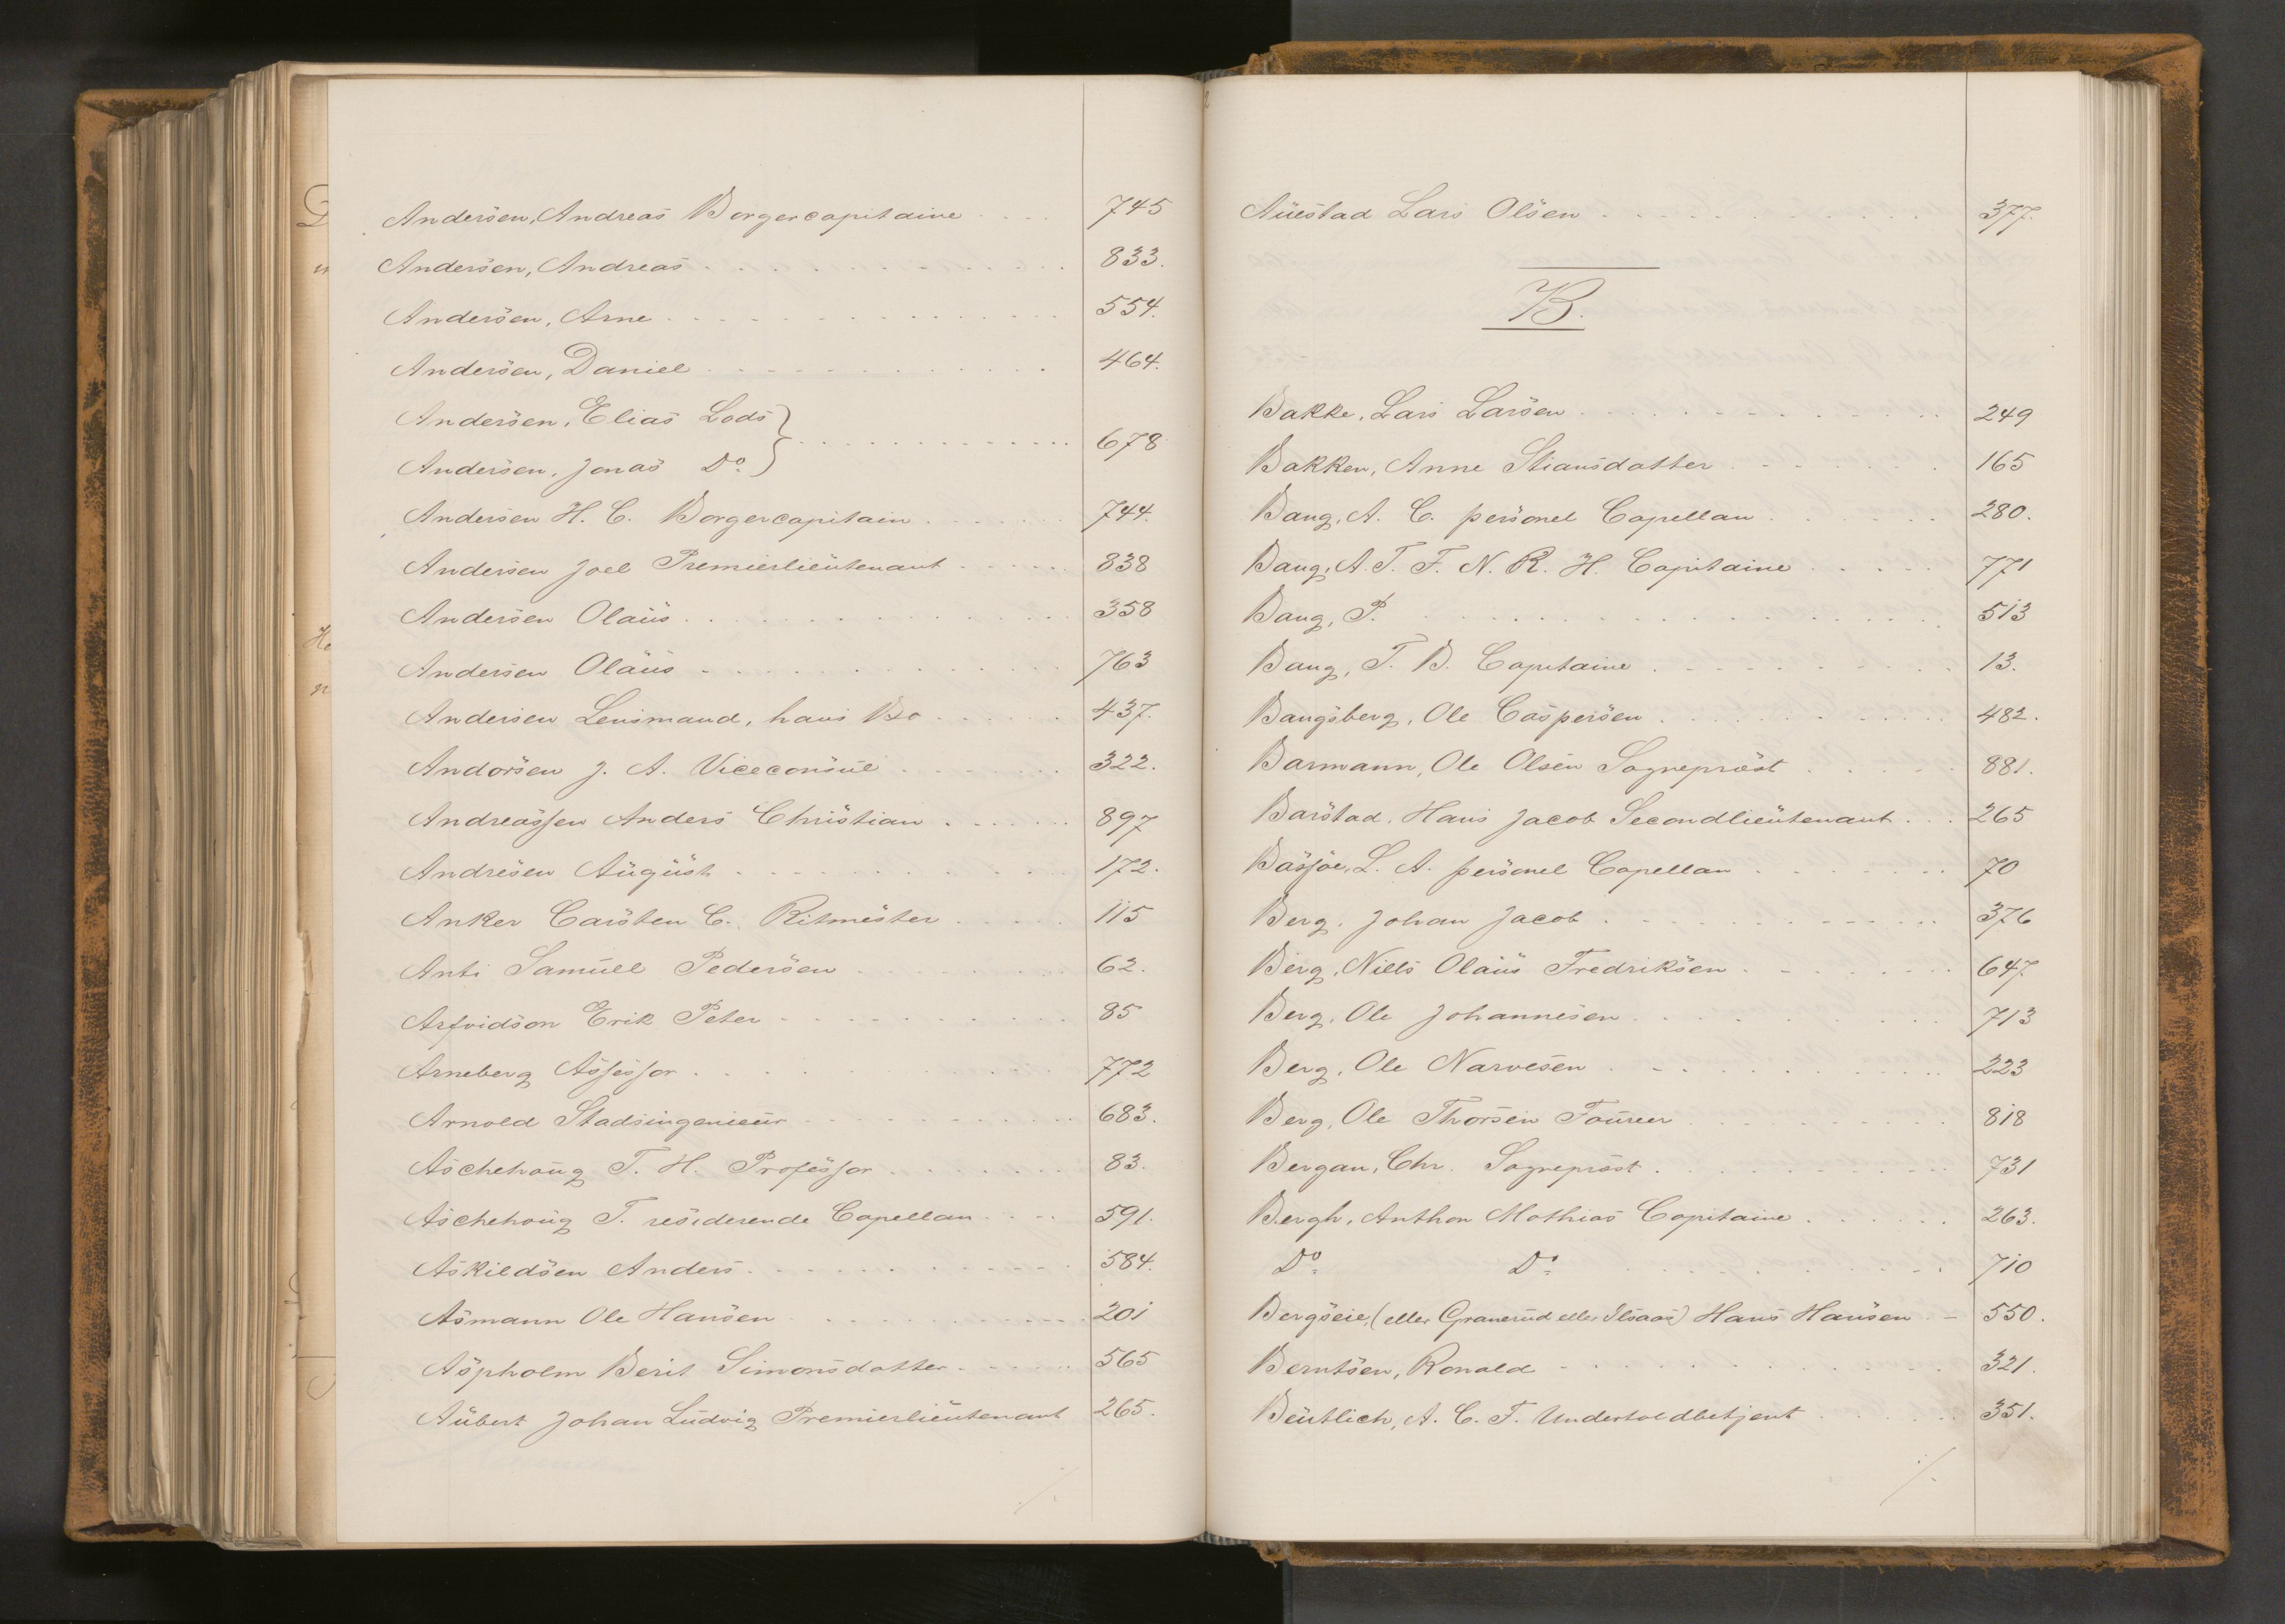 Andersen, Andreas Borgercapitaine 745
Andersen, Andreas 833.
Andersen, Arne 554.
Andersen, Daniel 464.
Andersen, Elias Lods
678
Andersen, Jonas Do.
Andersen H. C. Borgercapitain 744.
Andersen Joel Premierlieutenant 838
Andersen Olaus 358
Andersen Olaus 763
Andersen Lensmand, hans Bo 437.
Andorsen J. A. Viceconsul 322.
Andreassen Anders Christian 897
Andresen August 172.
Anker Carsten C. Ritmester 115
Anti Samuel Pedersen 62.
Arfvidson Erik Peter 85
Arneberg Assessor 772
Arnold Stadsingenieur 683.
Aschehoug T. H. Professor 83.
Aschehoug T. residerende Capellan 591.
Askildsen Anders 584.
Asmann Ole Hansen 201
Aspholm Berit Simonsdatter 565
Aubert Johan Ludvig Premierlieutenant 265.
Auestad Lars Olsen 377.
B.
Bakke, Lars Larsen 249
Bakken, Anne Stiansdatter 165
Bang, A. C. personel Capellan 280.
Bang, A. T. F. N. R. H. Capitaine 771
Bang, P. 513
Bang, T. B. Capitaine 13.
Bangsberg, Ole Caspersen 482.
Barmann, Ole Olsen Sogneprest 881.
Barstad, Hans Jacob Secondlieutenant 265
Basjøe, L. A. personel Capellan 70
Berg, Johan Jacob 376
Berg, Niels Olaus Fredriksen 647.
Berg, Ole Johannesen 713
Berg, Ole Narvesen 223
Berg, Ole Thorsen Fourer 818
Bergan, Chr. Sogneprest 731
Bergh, Anthon Mathias Capitaine 263.
Do. Do. 710
Bergseie, (eller Granerud eller Ilsaas) Hans Hansen 550.
Berntsen, Ronald 321.
Beutlich, A. C. F. Undertoldbetjent 351.